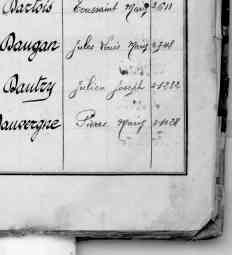 Bartois Toussaint Marie 2611
Baugan Jules Louis Marie
Bautry Julien Joseph
Dauvergne Pierre Marie